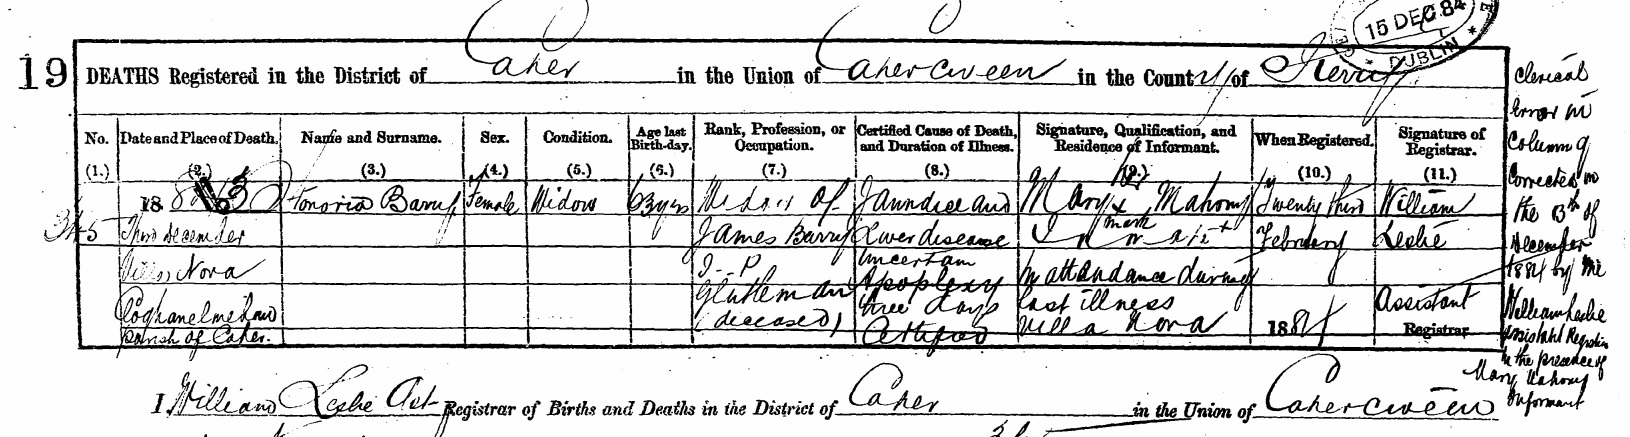 15 DEC 84
DUBLIN
19
DEATHS Registered in the District of Caher in the Union of Caherciveen in the County of Kerry
No. Date and Place of Death. Name and Surname. Sex. Condition. Age last Birth-day. Rank, Profession, or Occupation. Certified Cause of Death, and Duration of Illness. Signature, Qualification, and Residence of Informant. When Registered. Signature of Registrar.
(1.) (2.) (3.) (4.) (5.) (6.) (7.) (8.) (9.) (10.) (11.)
18 83 Honoria Barry Female Widow 63 yrs Widow of Jaundice and Mary X Mahony Twenty third William
345 Third December James Barry Liver disease mark February Leslie
Villa Nova J.P. Uncertain
Gentleman Apoplexy in attendance during
(deceased) three days last illness Assistant
parish of Caher. Certified Villa Nova 1884 Registrar.
Clerical
Error in
Column 9
Corrected on
the 13th of
December
1884 by me
William Leslie
Assistant Registrar
in the presence of
Mary Mahony
Informant
I William Leslie Registrar of Births and Deaths in the District of Caher in the Union of Caherciveen